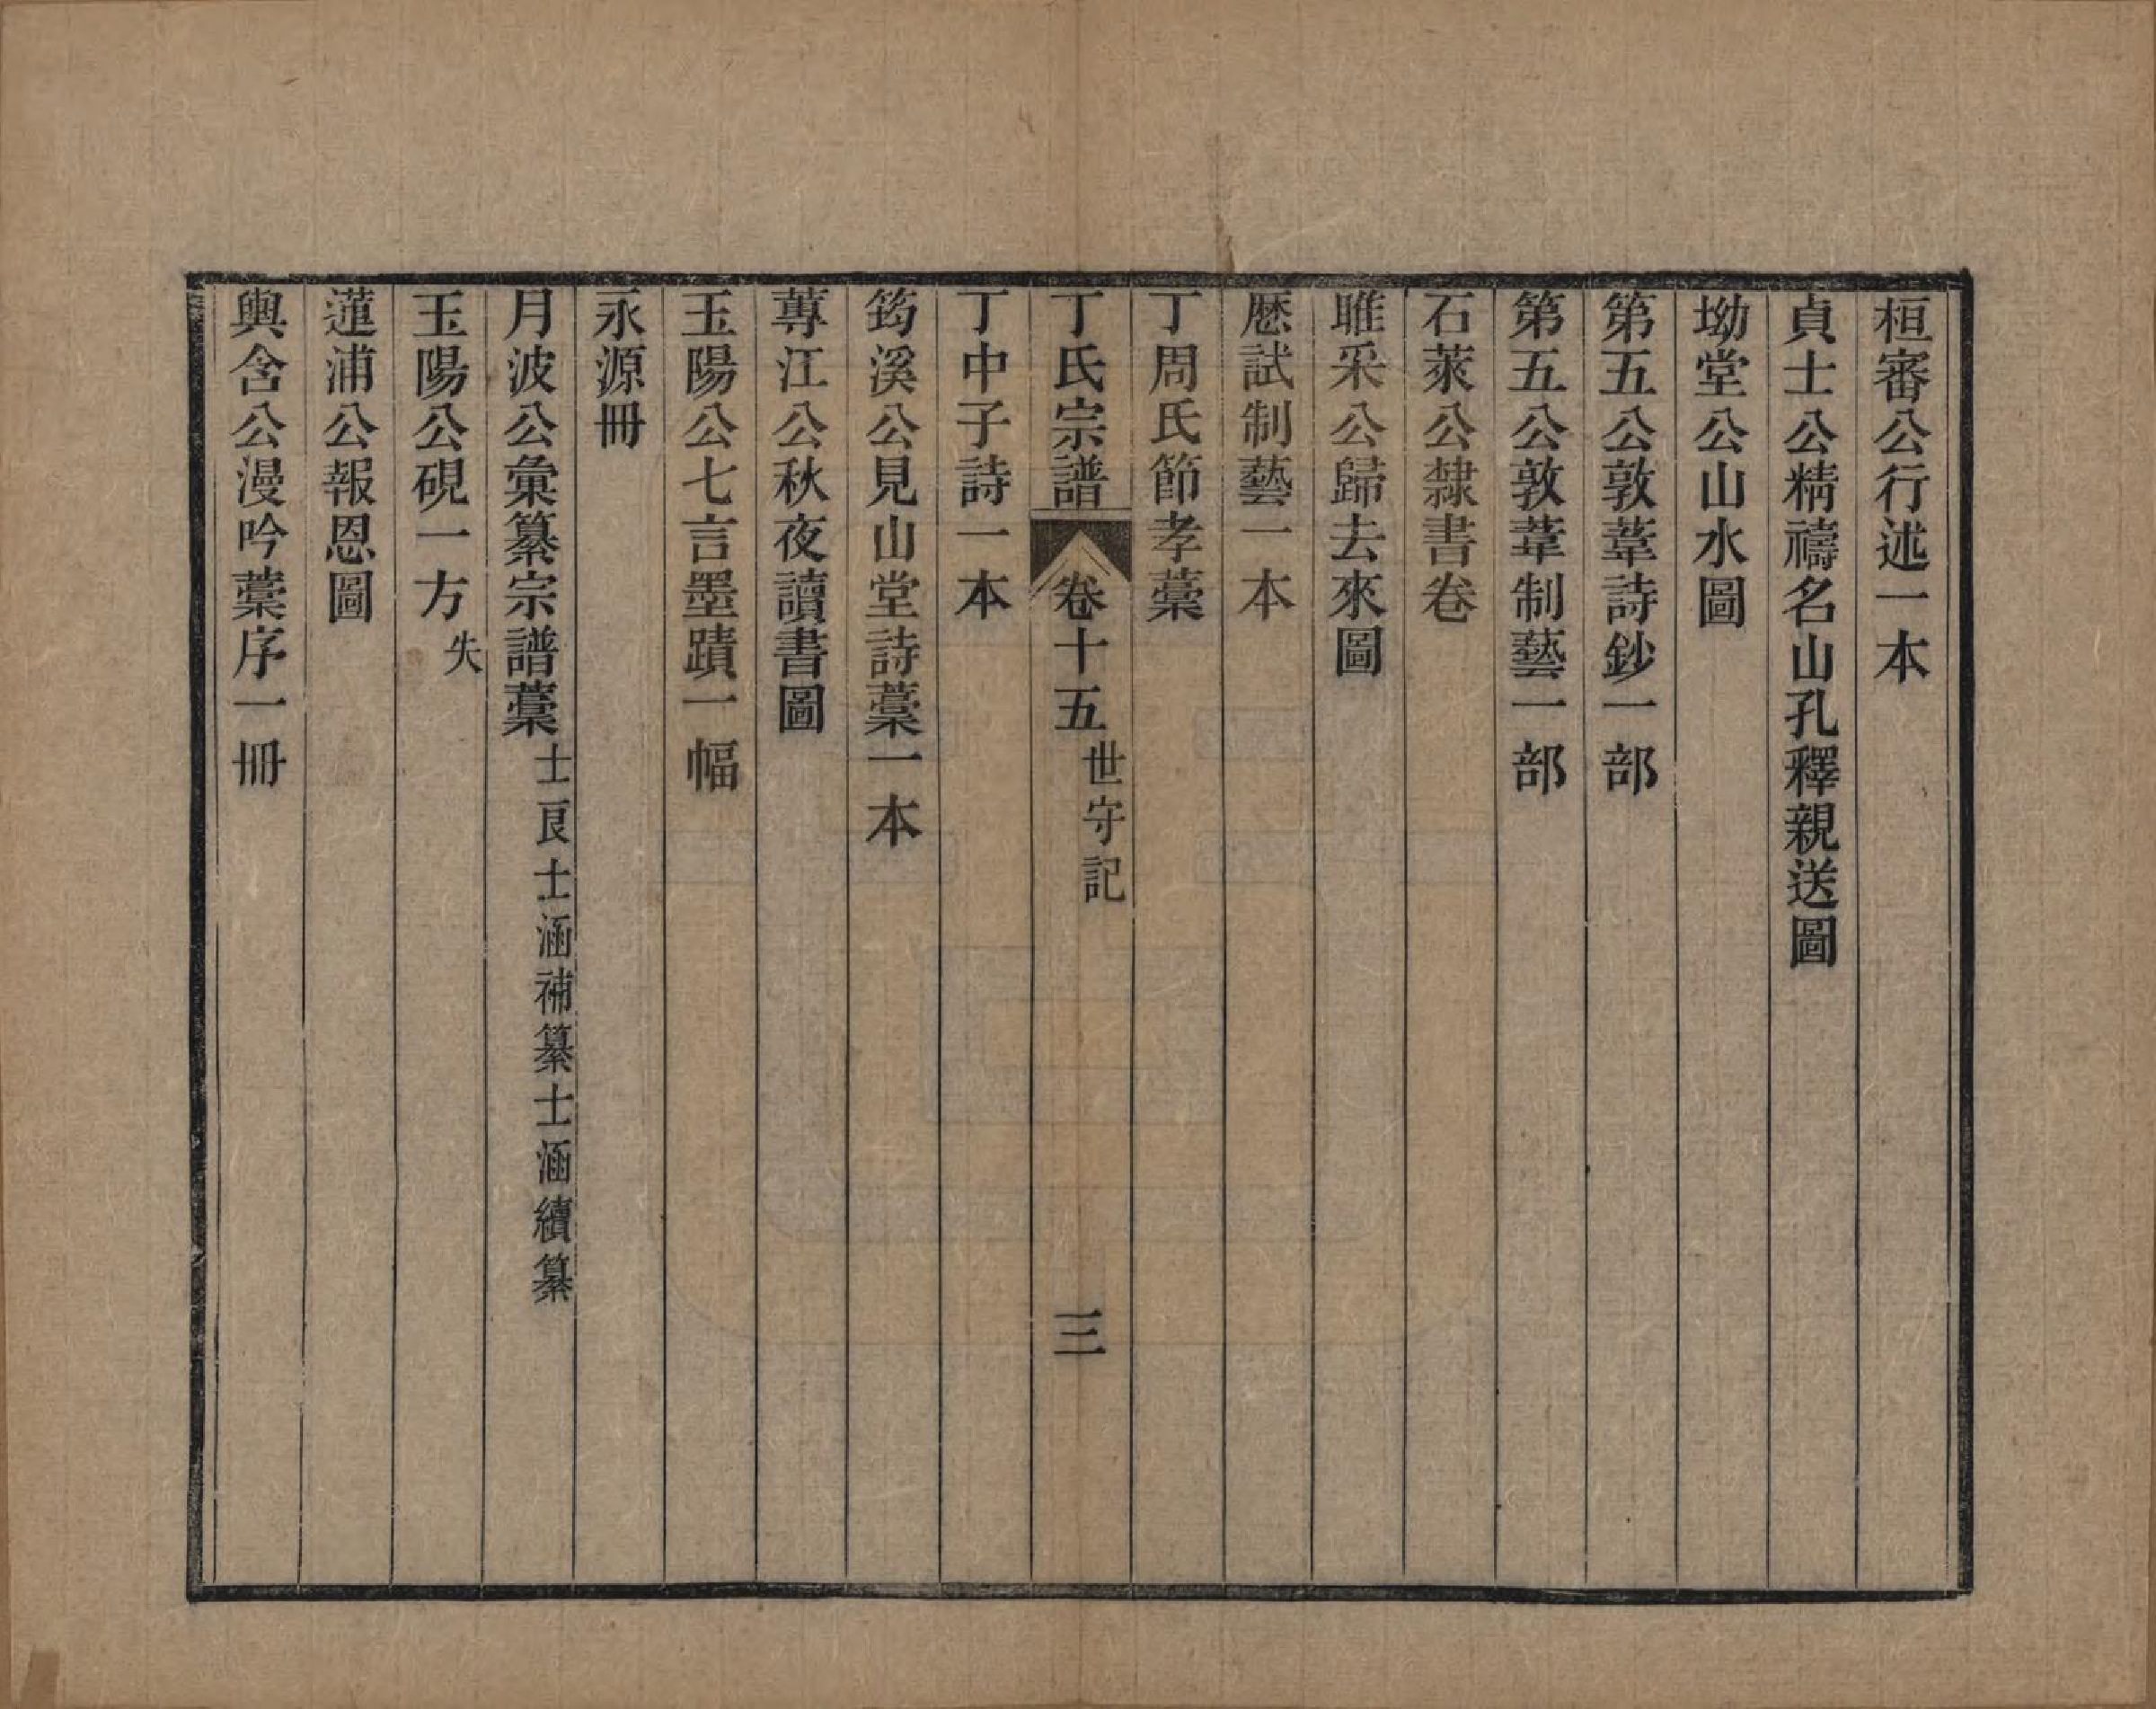 桓審公行述一本
貞士公精禱名山孔釋親送圖
坳堂公山水圖
第五公敦葦詩鈔一部
第五公敦葦制藝一部
石萊公隸書卷
雎采公歸去來圖
歷試制藝一本
丁周氏節孝藁
丁氏宗譜 卷十五 世守記 三
丁中子詩一本
筠溪公見山堂詩藁一本
蓴江公秋夜讀書圖
玉陽公七言墨蹟一幅
永源冊
月波公彙纂宗譜藁 士良士涵補纂士涵續纂
玉陽公硯一方 失
蓮浦公報恩圖
與含公漫吟藁序一冊